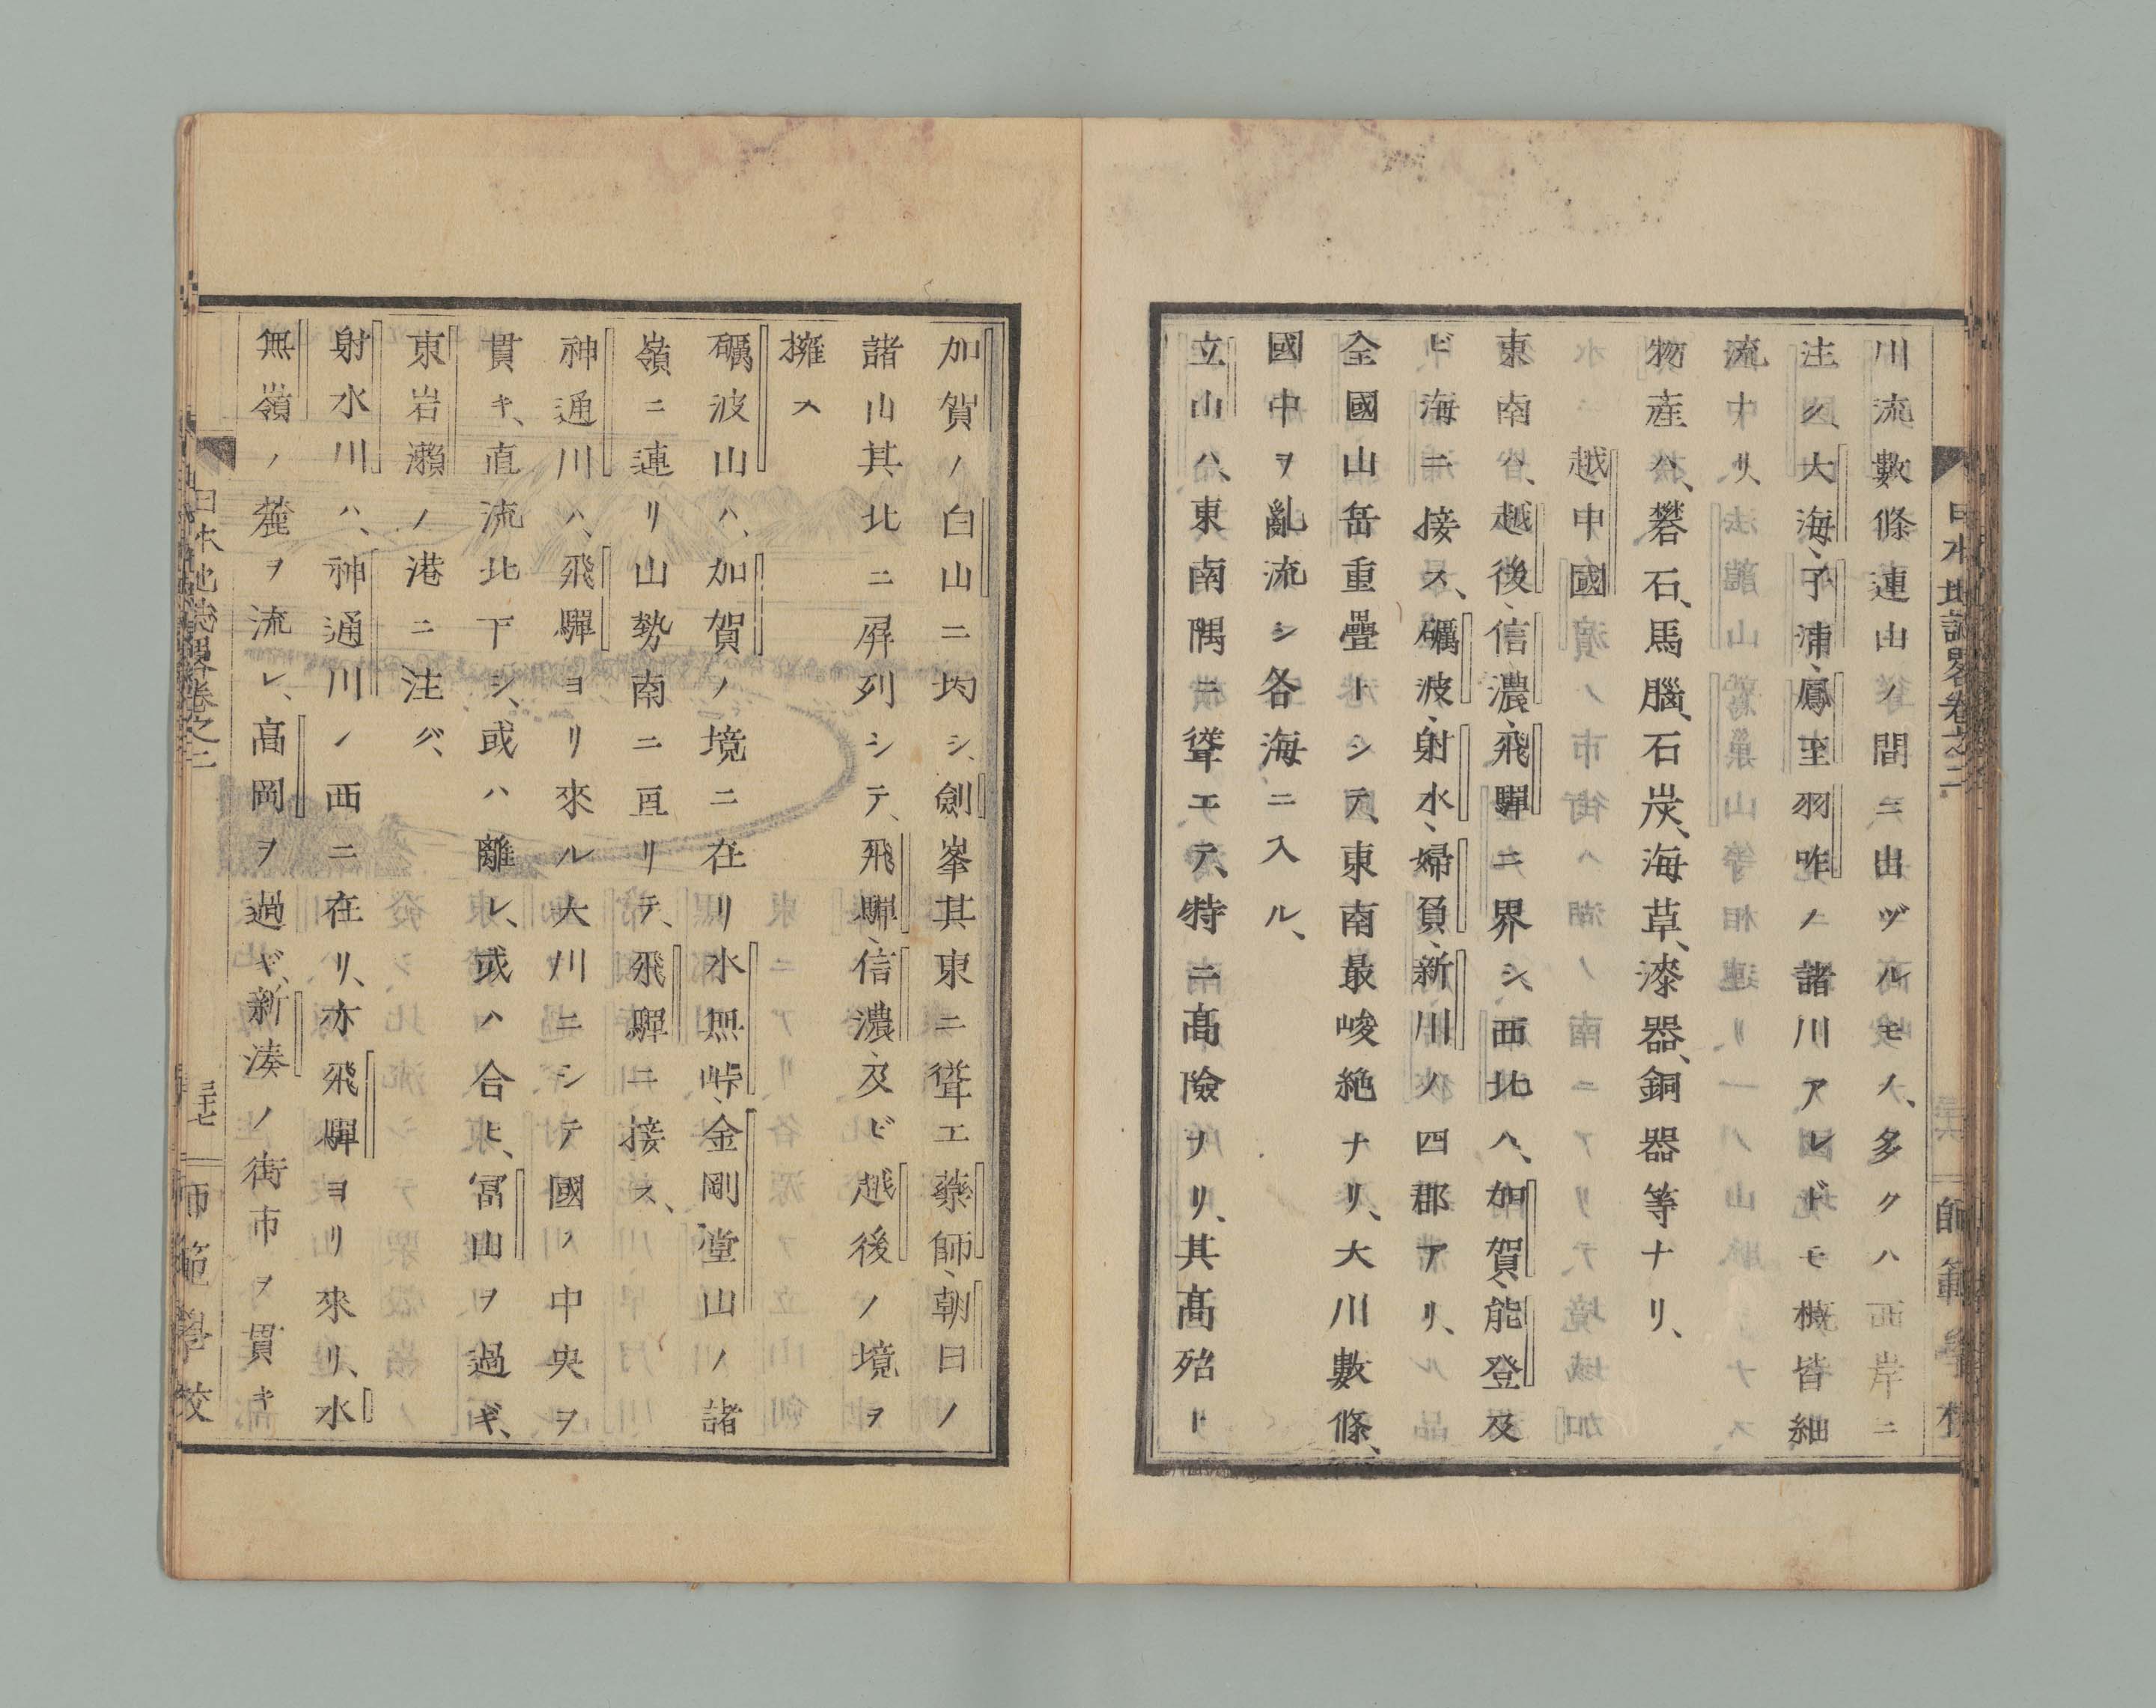 日本地誌畧卷之二
師範學校
川流數條連山ノ間ニ出ヅルモノ、多クハ西岸ニ
注シ、大海、子浦、鳳至、羽咋ノ諸川アレドモ概皆細
流ナリ、
物産ハ、礬石、馬腦、石炭、海草、漆器、銅器等ナリ、
越中國
東南ハ、越後、信濃、飛驒ニ界シ、西北ハ、加賀、能登及
ビ海ニ接ス、礪波、射水、婦負、新川ノ四郡アリ、
全國山岳重疊トシテ、東南最峻絶ナリ、大川數條、
國中ヲ亂流シ各海ニ入ル、
立山ハ、東南隅ニ聳エテ、特ニ髙險ナリ、其髙殆ト
加賀ノ白山ニ均シ、劍峯其東ニ聳エ藥師、朝日ノ
諸山其北ニ屏列シテ、飛驒、信濃、及ビ越後ノ境ヲ
擁ス
礪波山ハ、加賀ノ境ニ在リ水無峠、金剛堂山ノ諸
嶺ニ連リ山勢南ニ亘リテ、飛驒ニ接ス、
神通川ハ、飛驒ヨリ來ル大川ニシテ國ノ中央ヲ
貫キ、直流北下シ、或ハ離レ、或ハ合ヒ、冨山ヲ過ギ、
東岩瀬ノ港ニ注グ、
射水川ハ、神通川ノ西ニ在リ、亦飛驒ヨリ來リ、水
無嶺ノ麓ヲ流レ、髙岡ヲ過ギ、新湊ノ街市ヲ貫キ
日本地誌畧卷之二
三十七
師範學校